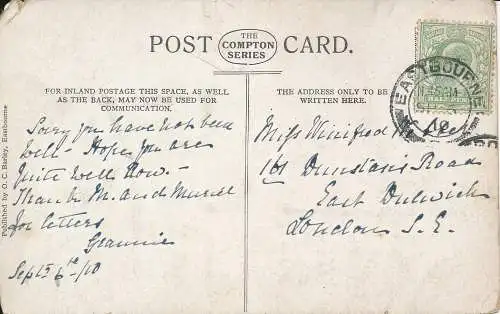 POST CARD.
THE
COMPTON
SERIES
FOR INLAND POSTAGE THIS SPACE, AS WELL
AS THE BACK, MAY NOW BE USED FOR
COMMUNICATION.
THE ADDRESS ONLY TO BE
WRITTEN HERE.
EASTBOURNE
10
Sorry you have not been
well - Hope you are
quite well now. -
Thank M. and Muriel
for letters
Grannie
Sept 6th/10
Miss Winifred
Dunstans Road
East Dulwich
London S.E.
Published by O. C. Barley, Eastbourne